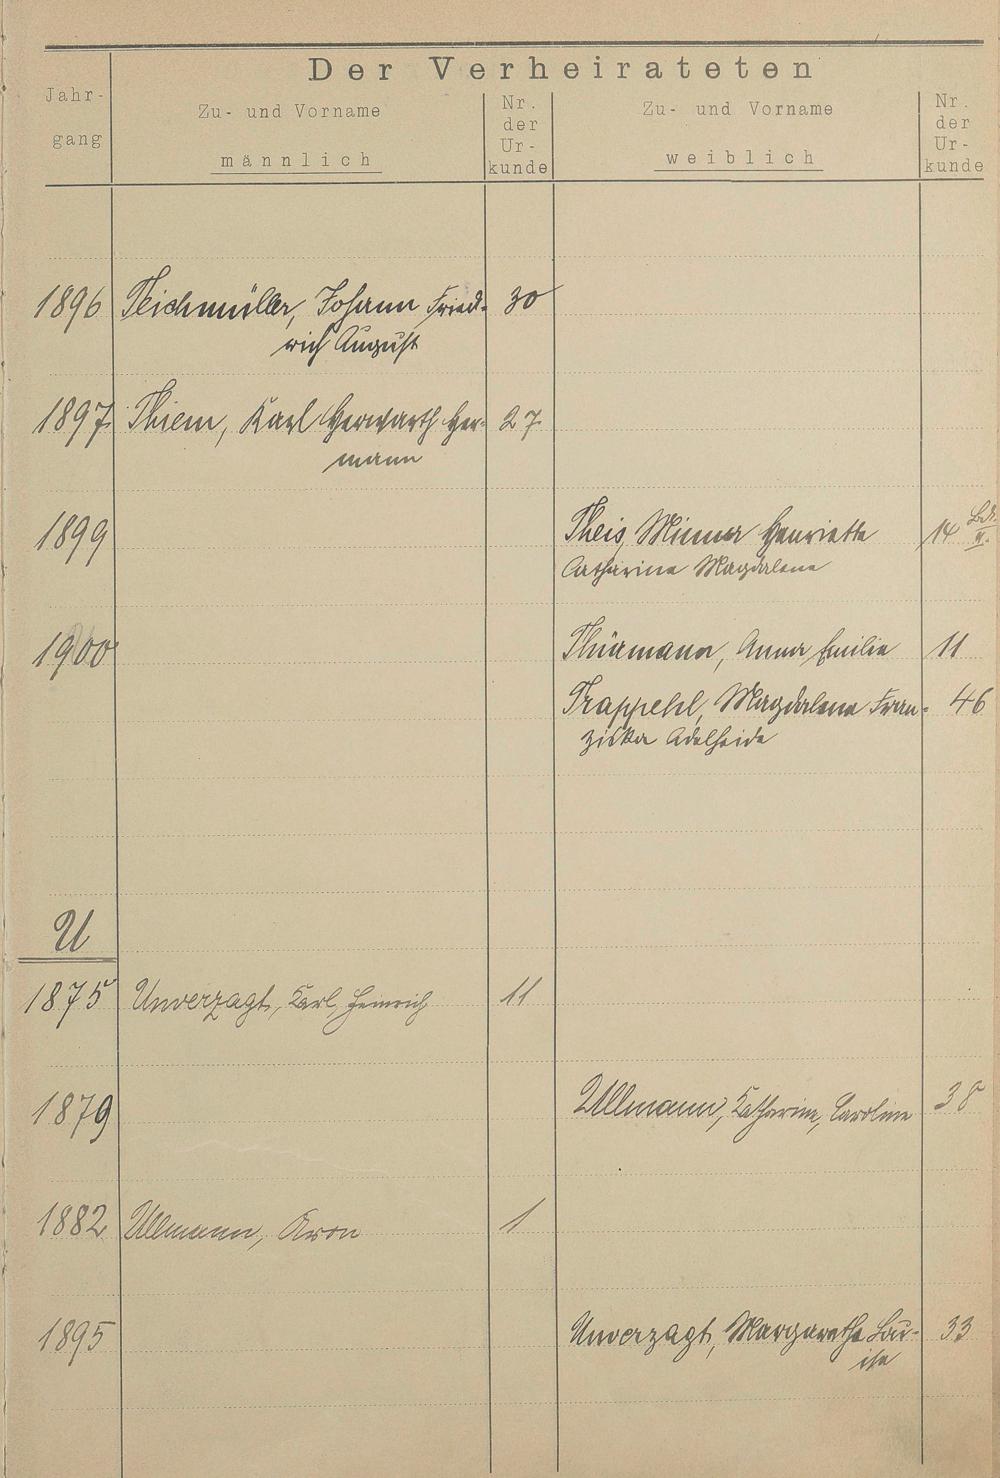 Der Verheirateten
Jahr-
gang
Zu- und Vorname
männlich
Nr.
der
Ur-
kunde
Zu- und Vorname
weiblich
Nr.
der
Ur-
kunde
1896 Teichmüller, Johann Fried- 30
rich August
1897 Thiem, Karl Herwarth Her- 27
mann
1899 Theis, Minna Henriette 14
Catharina Magdalena
1900 Thürmann, Anna Emilie 11
Trappehl, Magdalena Fran- 46
ziska Adelheide
U
1875 Unverzagt, Karl, Heinrich 11
1879 Ullmann, Katharine, Caroline 38
1882 Ullmann, Aron 1
1895 Unverzagt, Margarethe Lou- 33
ise